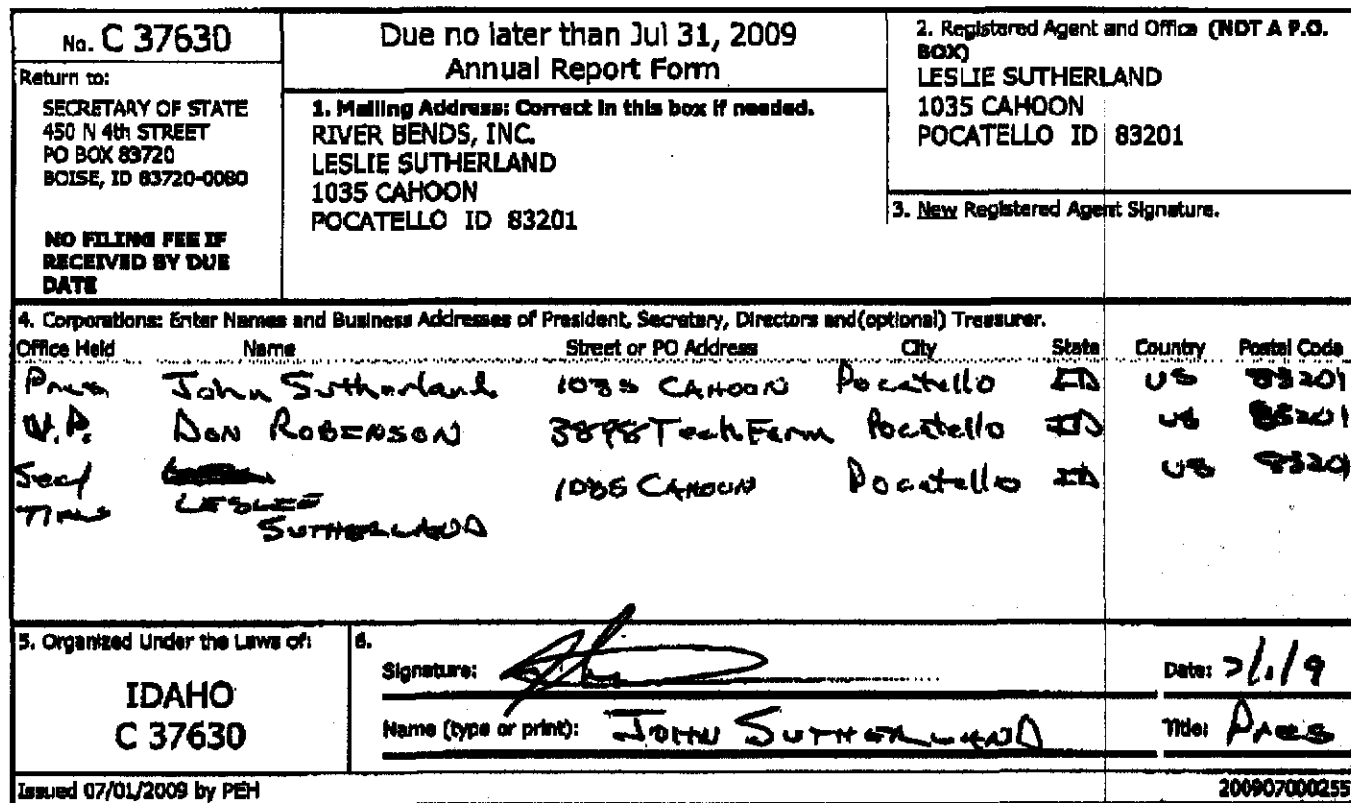 No. C 37630
Return to:
SECRETARY OF STATE
450 N 4th STREET
PO BOX 83720
BOISE, ID 83720-0080
NO FILING FEE IF
RECEIVED BY DUE
DATE
Due no later than Jul 31, 2009
Annual Report Form
1. Mailing Address: Correct in this box if needed.
RIVER BENDS, INC.
LESLIE SUTHERLAND
1035 CAHOON
POCATELLO ID 83201
2. Registered Agent and Office (NOT A P.O.
BOX)
LESLIE SUTHERLAND
1035 CAHOON
POCATELLO ID 83201
3. New Registered Agent Signature.
4. Corporations: Enter Names and Business Addresses of President, Secretary, Directors and(optional) Treasurer.
Office Held Name Street or PO Address City State Country Postal Code
Pres John Sutherland 1035 CAHOON Pocatello ID US 83201
V.P. DON ROBENSON 3898 Tech Farm Pocatello ID US 83201
Sec/ 1035 CAHOON Pocatello ID US 83201
Tres LESLIE
SUTHERLAND
5. Organized Under the Laws of:
IDAHO
C 37630
6.
Signature:
Date: 7/1/9
Name (type or print): JOHN SUTHERLAND
Title: Pres
Issued 07/01/2009 by PEH
200907000255